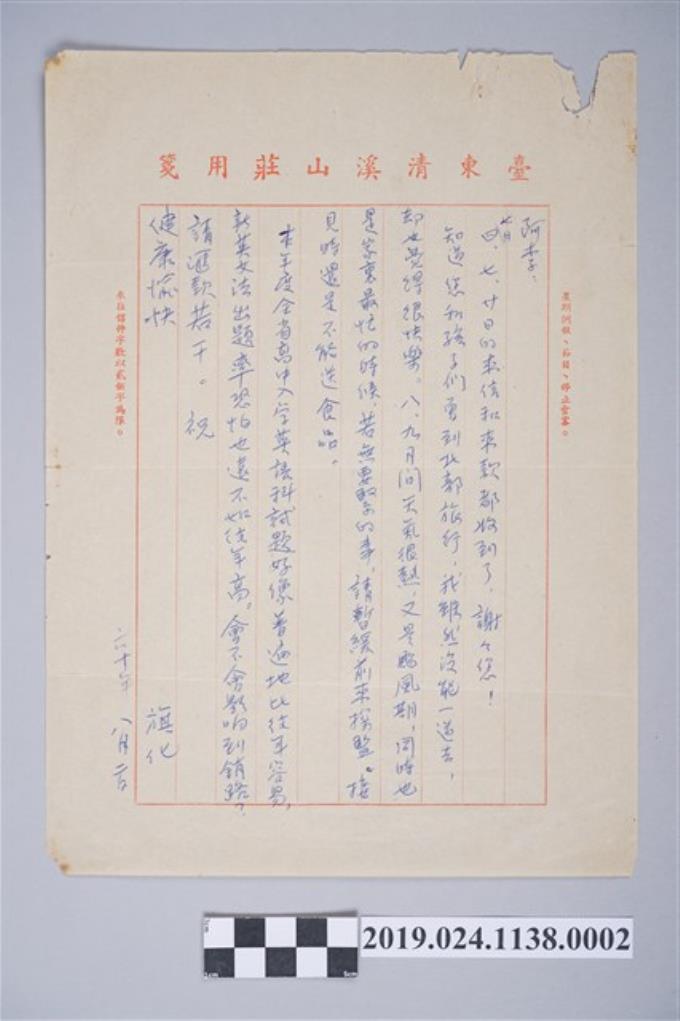 臺東清溪山莊用箋
星期例假、節日、停止會客。
阿李:
四、七、廿日的來信和來款都收到了,謝々您!
七月
知道您和孩子們要到北部旅行,我雖然沒能一道去,
却也覺得很快樂。八、九月間天氣很熱,又是颱風期,同時也
是家裏最忙的時候,若無要緊的事,請暫緩前來探監。接
見時還是不能送食品。
本年度全省高中入学英語科試題好像普遍地比往年容易,
新英文法出題率恐怕也遠不如往年高。會不會影响到銷路?
請滙款若干。祝
健康愉快
旗化
六十年八月二日
來往信件字數以貳佰字為限。
2019.024.1138.0002
1cm
5cm